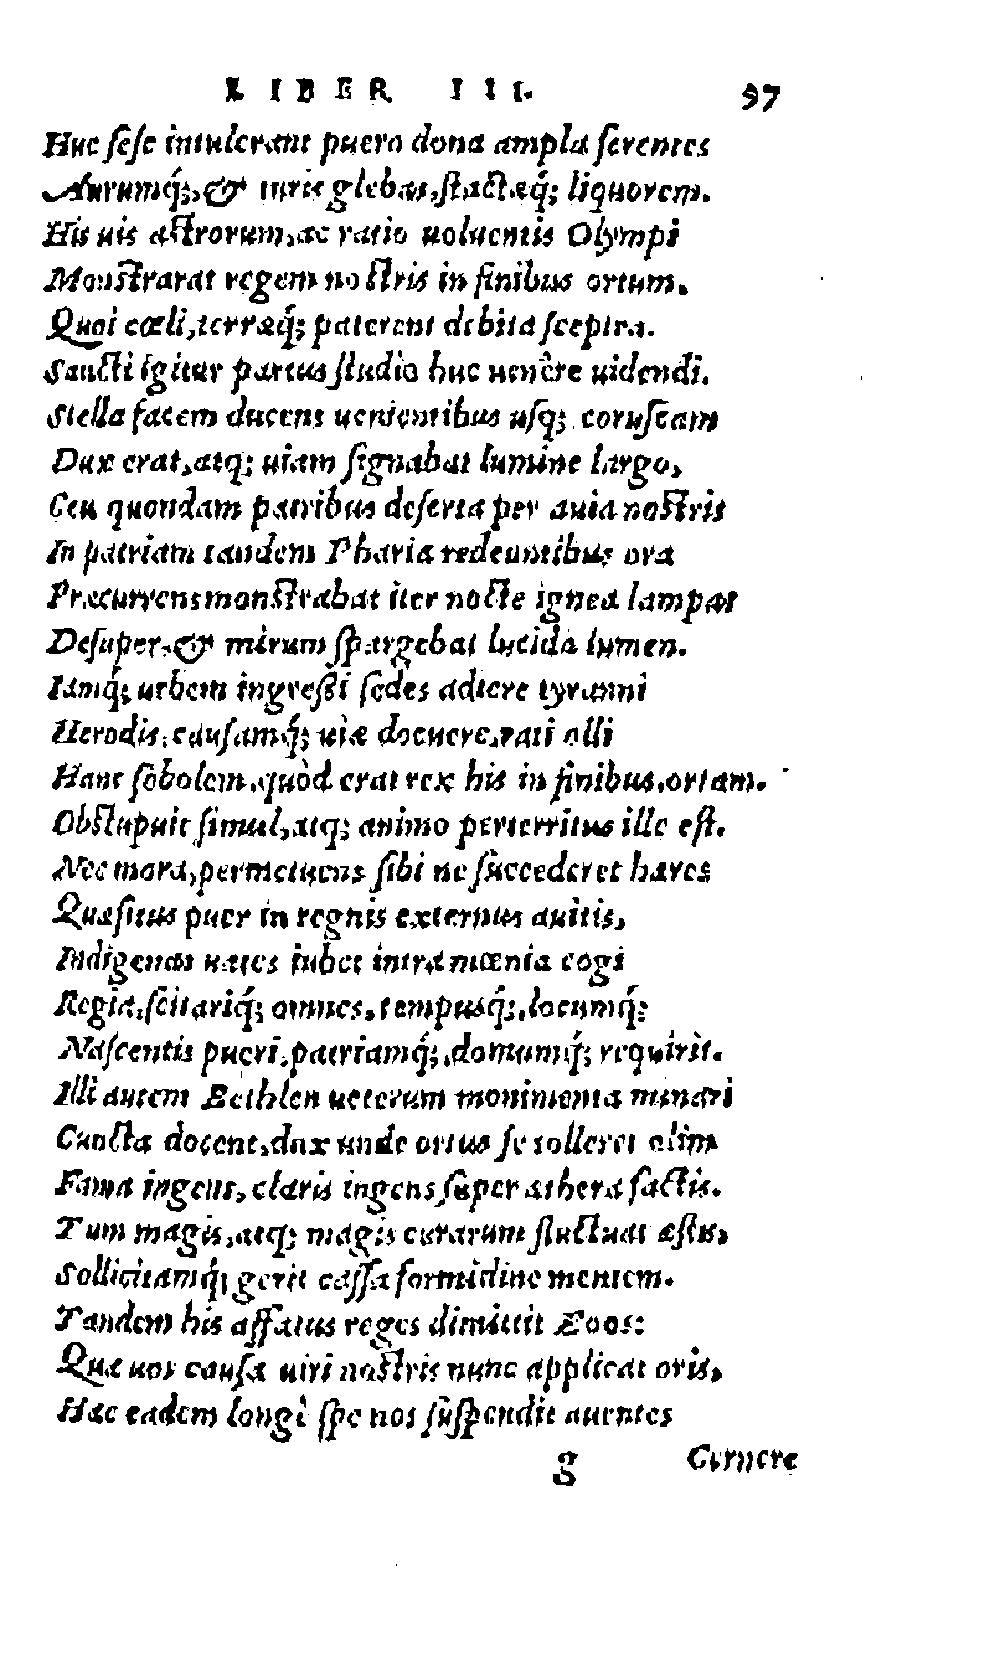 LIBER III. 97
Huc sese intulerant puero dona ampla ferentes
Aurumq́;, & turis glebas, stactæq́; liquorem.
His uis astrorum, ac ratio uoluentis Olympi
Monstrarat regem nostris in finibus ortum.
Quoi cœli, terræq́; paterent debita sceptra.
Sancti igitur partus studio huc uenêre uidendi.
Stella facem ducens uenientibus usq; coruscam
Dux erat, atq; uiam signabat lumine largo,
Ceu quondam patribus deserta per auia nostris
In patriam tandem Pharia redeuntibus ora
Præcurrens monstrabat iter nocte ignea lampas
Desuper, & mirum spargebat lucida lumen.
Iamq́; urbem ingreßi sedes adiere tyranni
Herodis, causamq́; uiæ docuere, rati olli
Hanc sobolem, quòd erat rex his in finibus, ortam.
Obstupuit simul, atq; animo perterritus ille est.
Nec mora, permetuens sibi ne succederet hæres
Quæsitus puer in regnis externus auitis,
Indigenas uates iubet intra mœnia cogi
Regia, scitariq́; omnes, tempusq́;, locumq́;
Nascentis pueri, patriamq́;, domumq́; requirit.
Illi autem Bethlen ueterum monimenta minari
Cuncta docent, dux unde ortus se tolleret olim
Fama ingens, claris ingens super æthera factis.
Tum magis, atq; magis curarum fluctuat æstu,
Sollicitamq́; gerit cassa formidine mentem.
Tandem his affatus reges dimittit Eoos:
Quæ uos causa uiri nostris nunc applicat oris,
Hæc eadem longè spe nos suspendit auentes
g Cernere